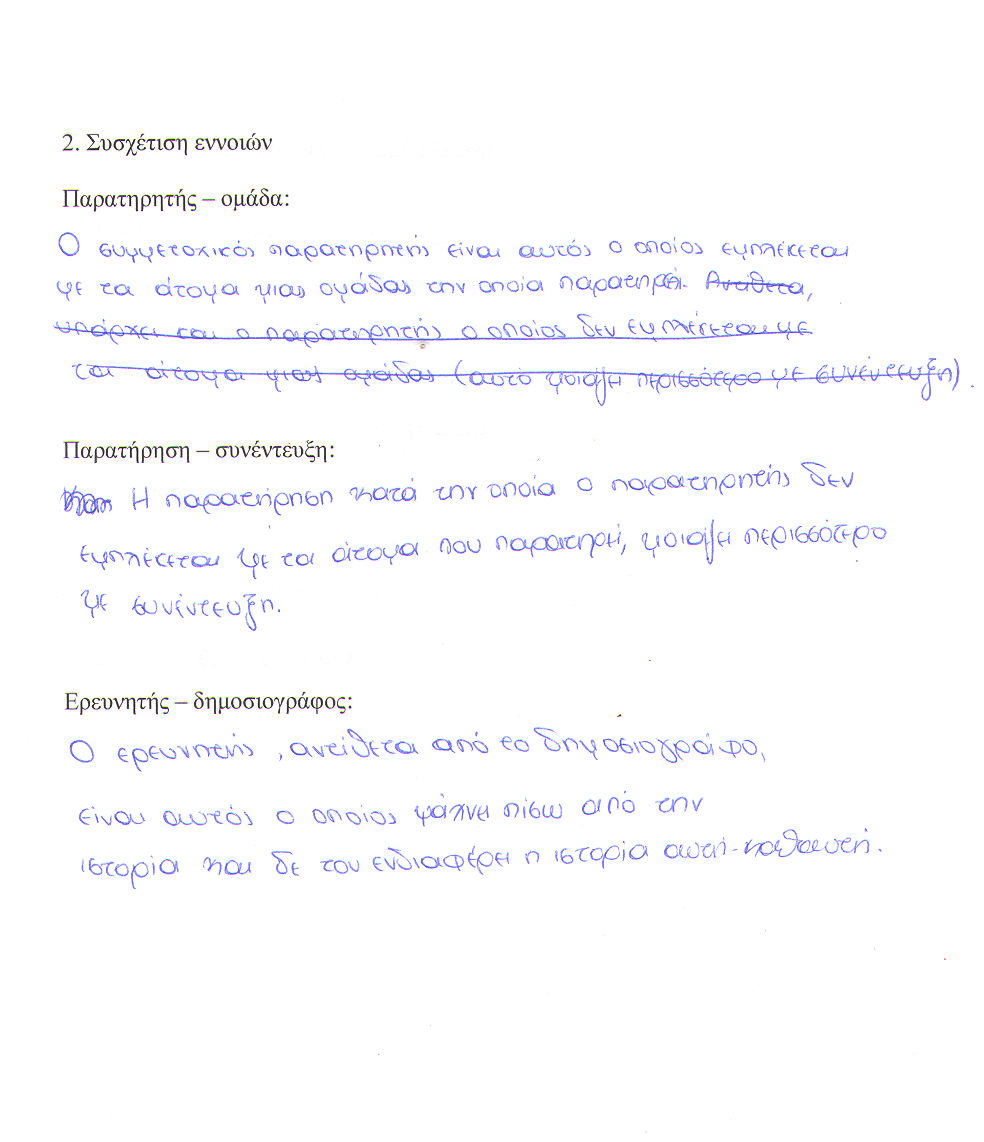 2. Συσχέτιση εννοιών
Παρατηρητής – ομάδα:
Ο συμμετοχικός παρατηρητής είναι αυτός ο οποίος εμπλέκεται
με τα άτομα μιας ομάδας την οποία παρατηρεί. Αντίθετα,
υπάρχει και ο παρατηρητής ο οποίος δεν εμπλέκεται με
τα άτομα μιας ομάδας (αυτό μοιάζει περισσότερο με συνέντευξη).
Παρατήρηση – συνέντευξη:
Η παρατήρηση κατά την οποία ο παρατηρητής δεν
εμπλέκεται με τα άτομα που παρατηρεί, μοιάζει περισσότερο
με συνέντευξη.
Ερευνητής – δημοσιογράφος:
Ο ερευνητής, αντίθετα από το δημοσιογράφο,
είναι αυτός ο οποίος ψάχνει πίσω από την
ιστορία και δε τον ενδιαφέρει η ιστορία αυτή-καθαυτή.